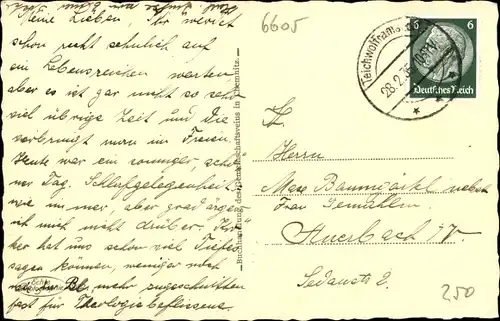 Meine Lieben, Ihr werdet
schon recht sehnlich auf
ein Lebenszeichen warten
aber es ist gar nicht so sehr
viel übrige Zeit und die
verbringt man im Freien
Heute war ein sonniger, schö-
ner Tag. Schlafgelegenheit
wie immer, aber grad
ich mich nicht drüber.
ker hat uns schon viel Tiefes
sagen können, weniger noch
mehr
fest für Theologie beflissene.
Buchhandlung des Gemeinschaftsvereins in Chemnitz.
6605
Teichwolframs
28.2.35
6 6
Deutsches Reich
H.
Herrn
Max Baumgärtel nebst
Frau Gemahlin
Auerbach i/V.
Sedanstr 2.
250